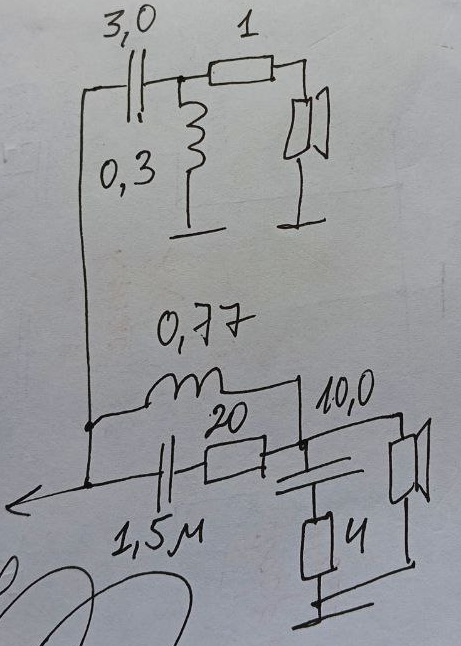 3,0
1
0,3
0,77
20
10,0
1,5м
4